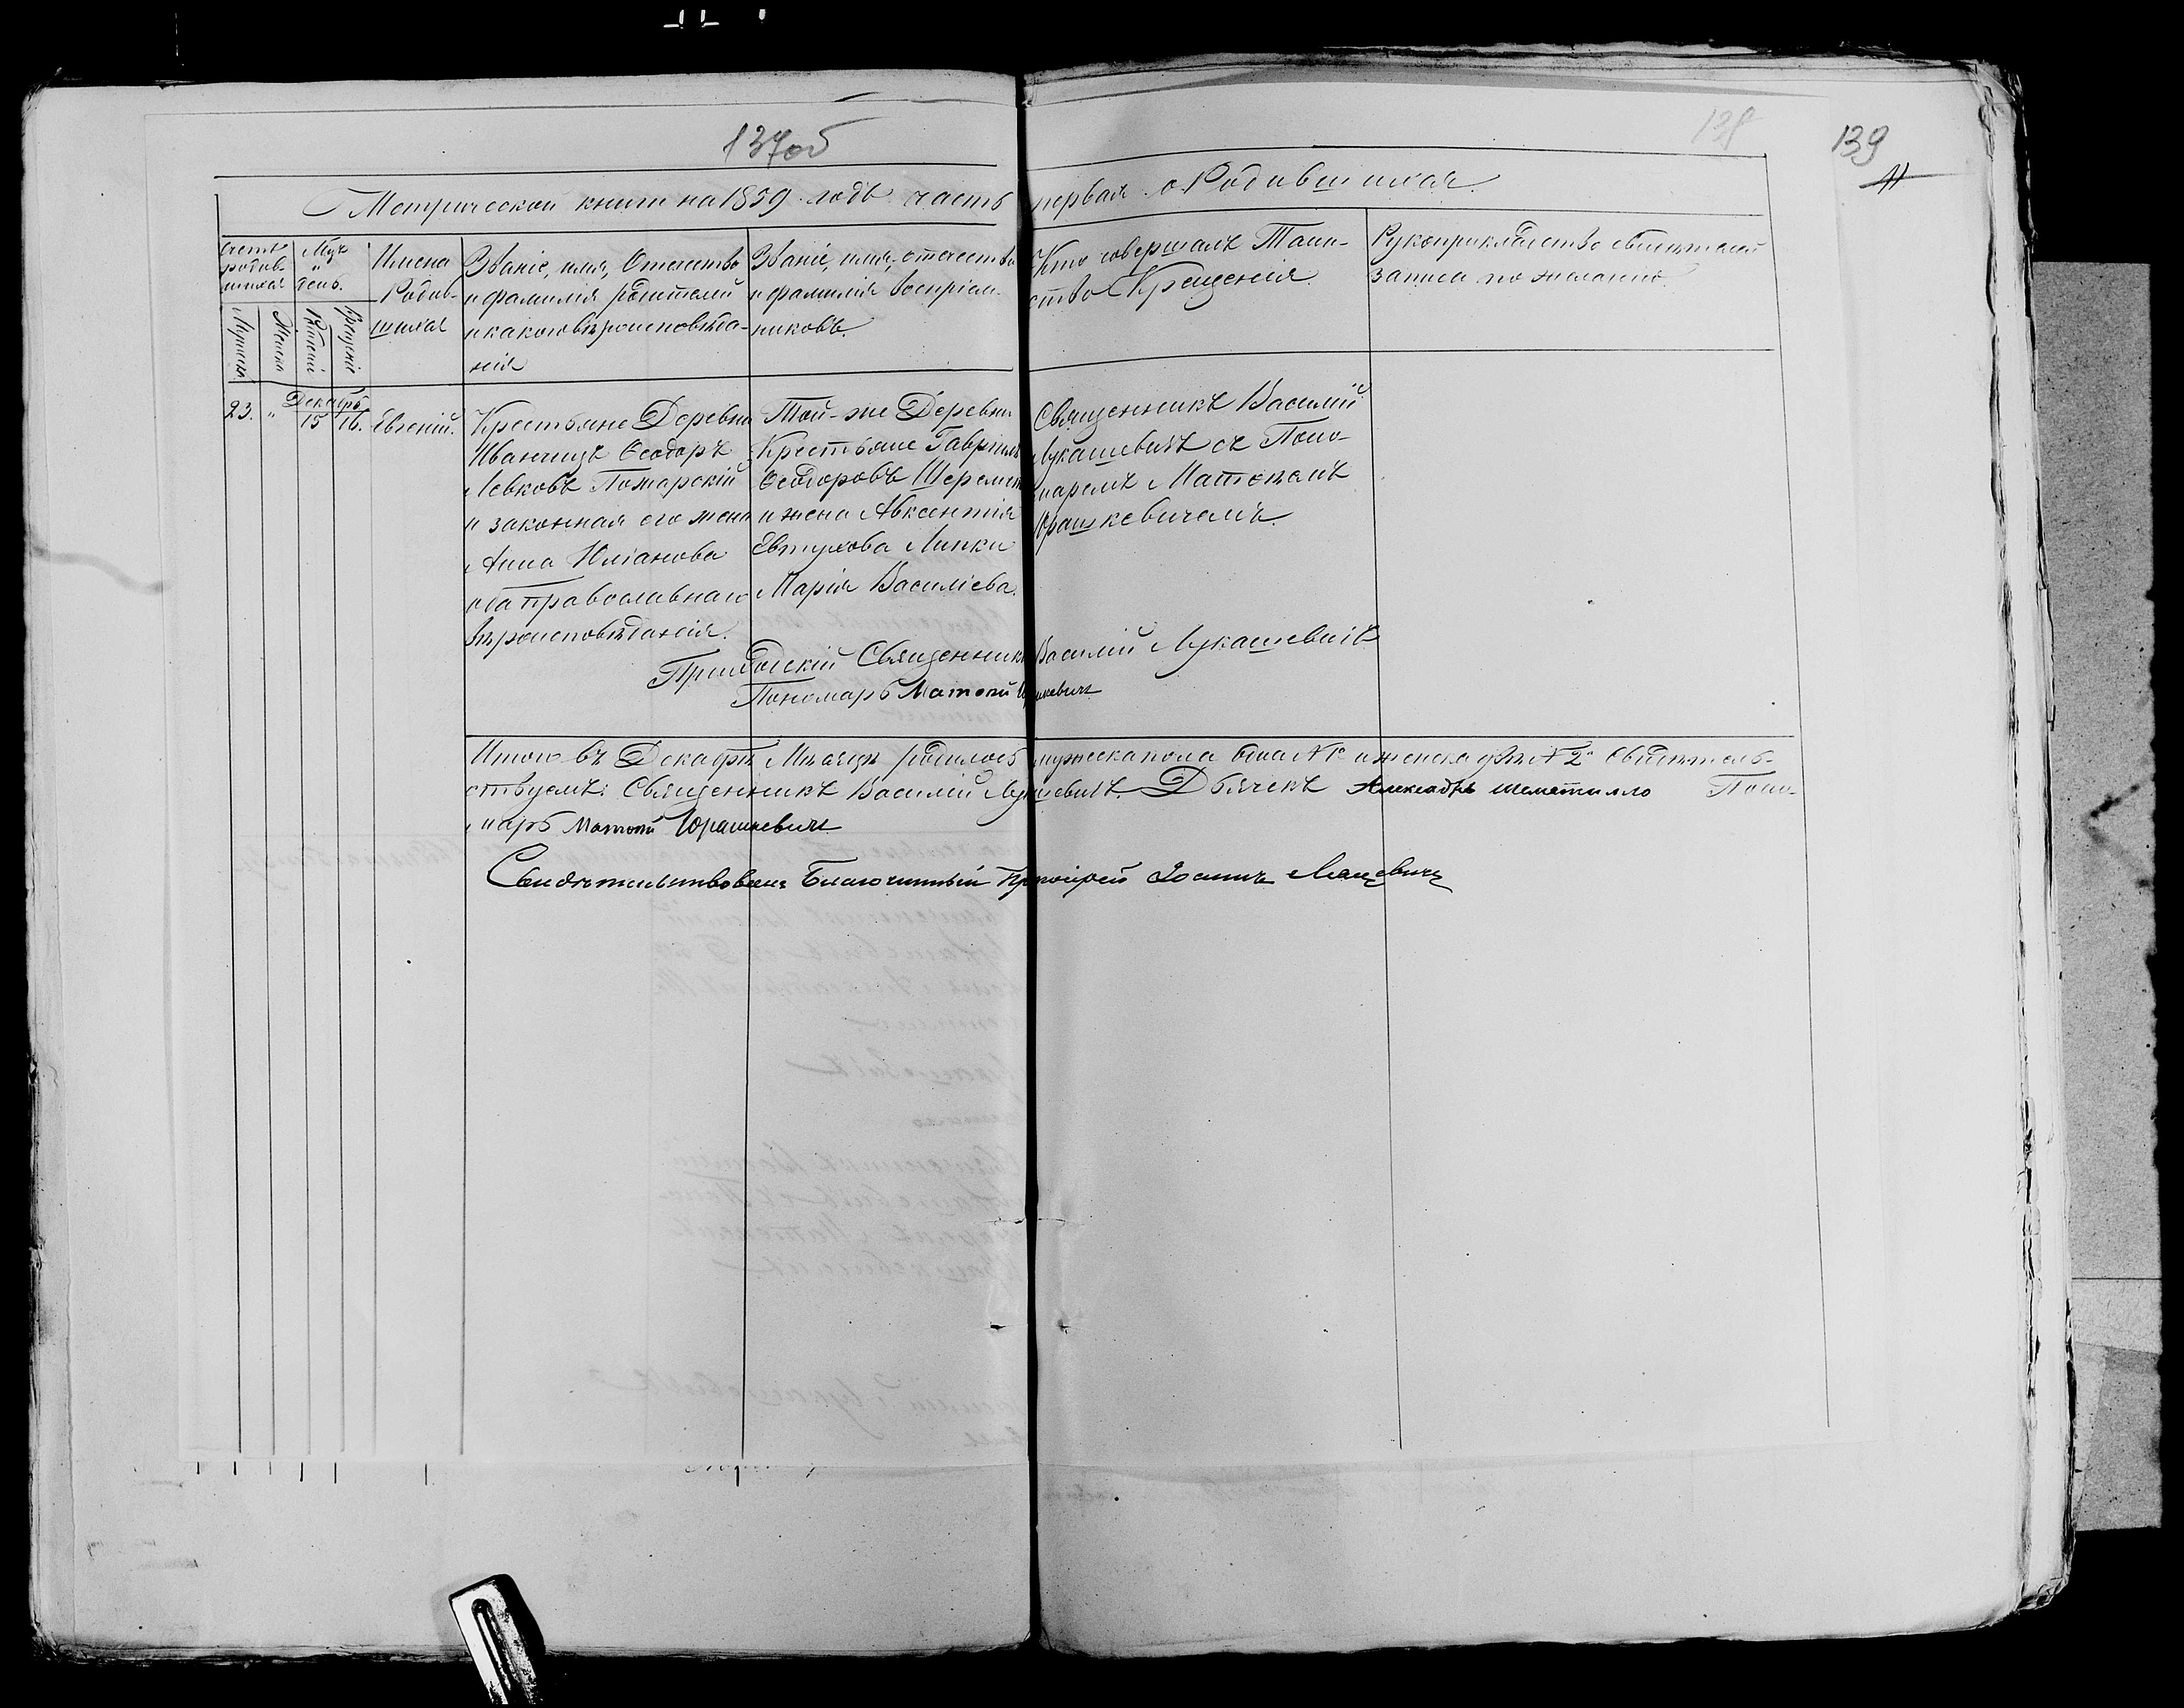 137об
139
11
Метрической книги на 1859 годъ часть первая о Родившихся.
Счетъ родив-шихся
Мужеска
Женска
Мцъ и день.
Рожденія
Крещенія
Имена
Родив-
шихся
Званіе, имя, Отчество
и фамилія родителей
и какого вѣроисповѣда-
нія
Званіе, имя, отчество
и фамилія воспріем-
никовъ.
Кто совершалъ Таин-
ство Крещенія
Рукоприкладство свидѣтелей
записи по желанію
Декабрь
23. " 15 16. Евгеній.
Крестьяне Деревни
Иванчицъ Ѳеодоръ
Левковъ Пожарскій
и законная его жена
Анна Юліанова
оба православнаго
вѣроисповѣданія.
Той-же Деревни
Крестьяне Гавріилъ
Ѳеодоровъ Шеремет
и жена Авксентія
Евтухова Липки
Марія Василіева.
Священникъ Василій
Лукашевичъ съ Поно-
маремъ Матѳеемъ
Юрашкевичемъ.
Приходскій Священникъ Василій Лукашевичъ
Пономарь Матѳей Юрашкевичъ
Итого въ Декабрѣ Мѣсяцѣ родилось мужеска пола единъ №1 и женска двѣ №2 Свидѣтель-
ствуемъ: Священникъ Василій Лукашевичъ. Дьячекъ Александръ Шеметилло Поно-
марь Матѳей Юрашкевичъ
Свидѣтельствовалъ Благочинный Протоіерей Іоаннъ